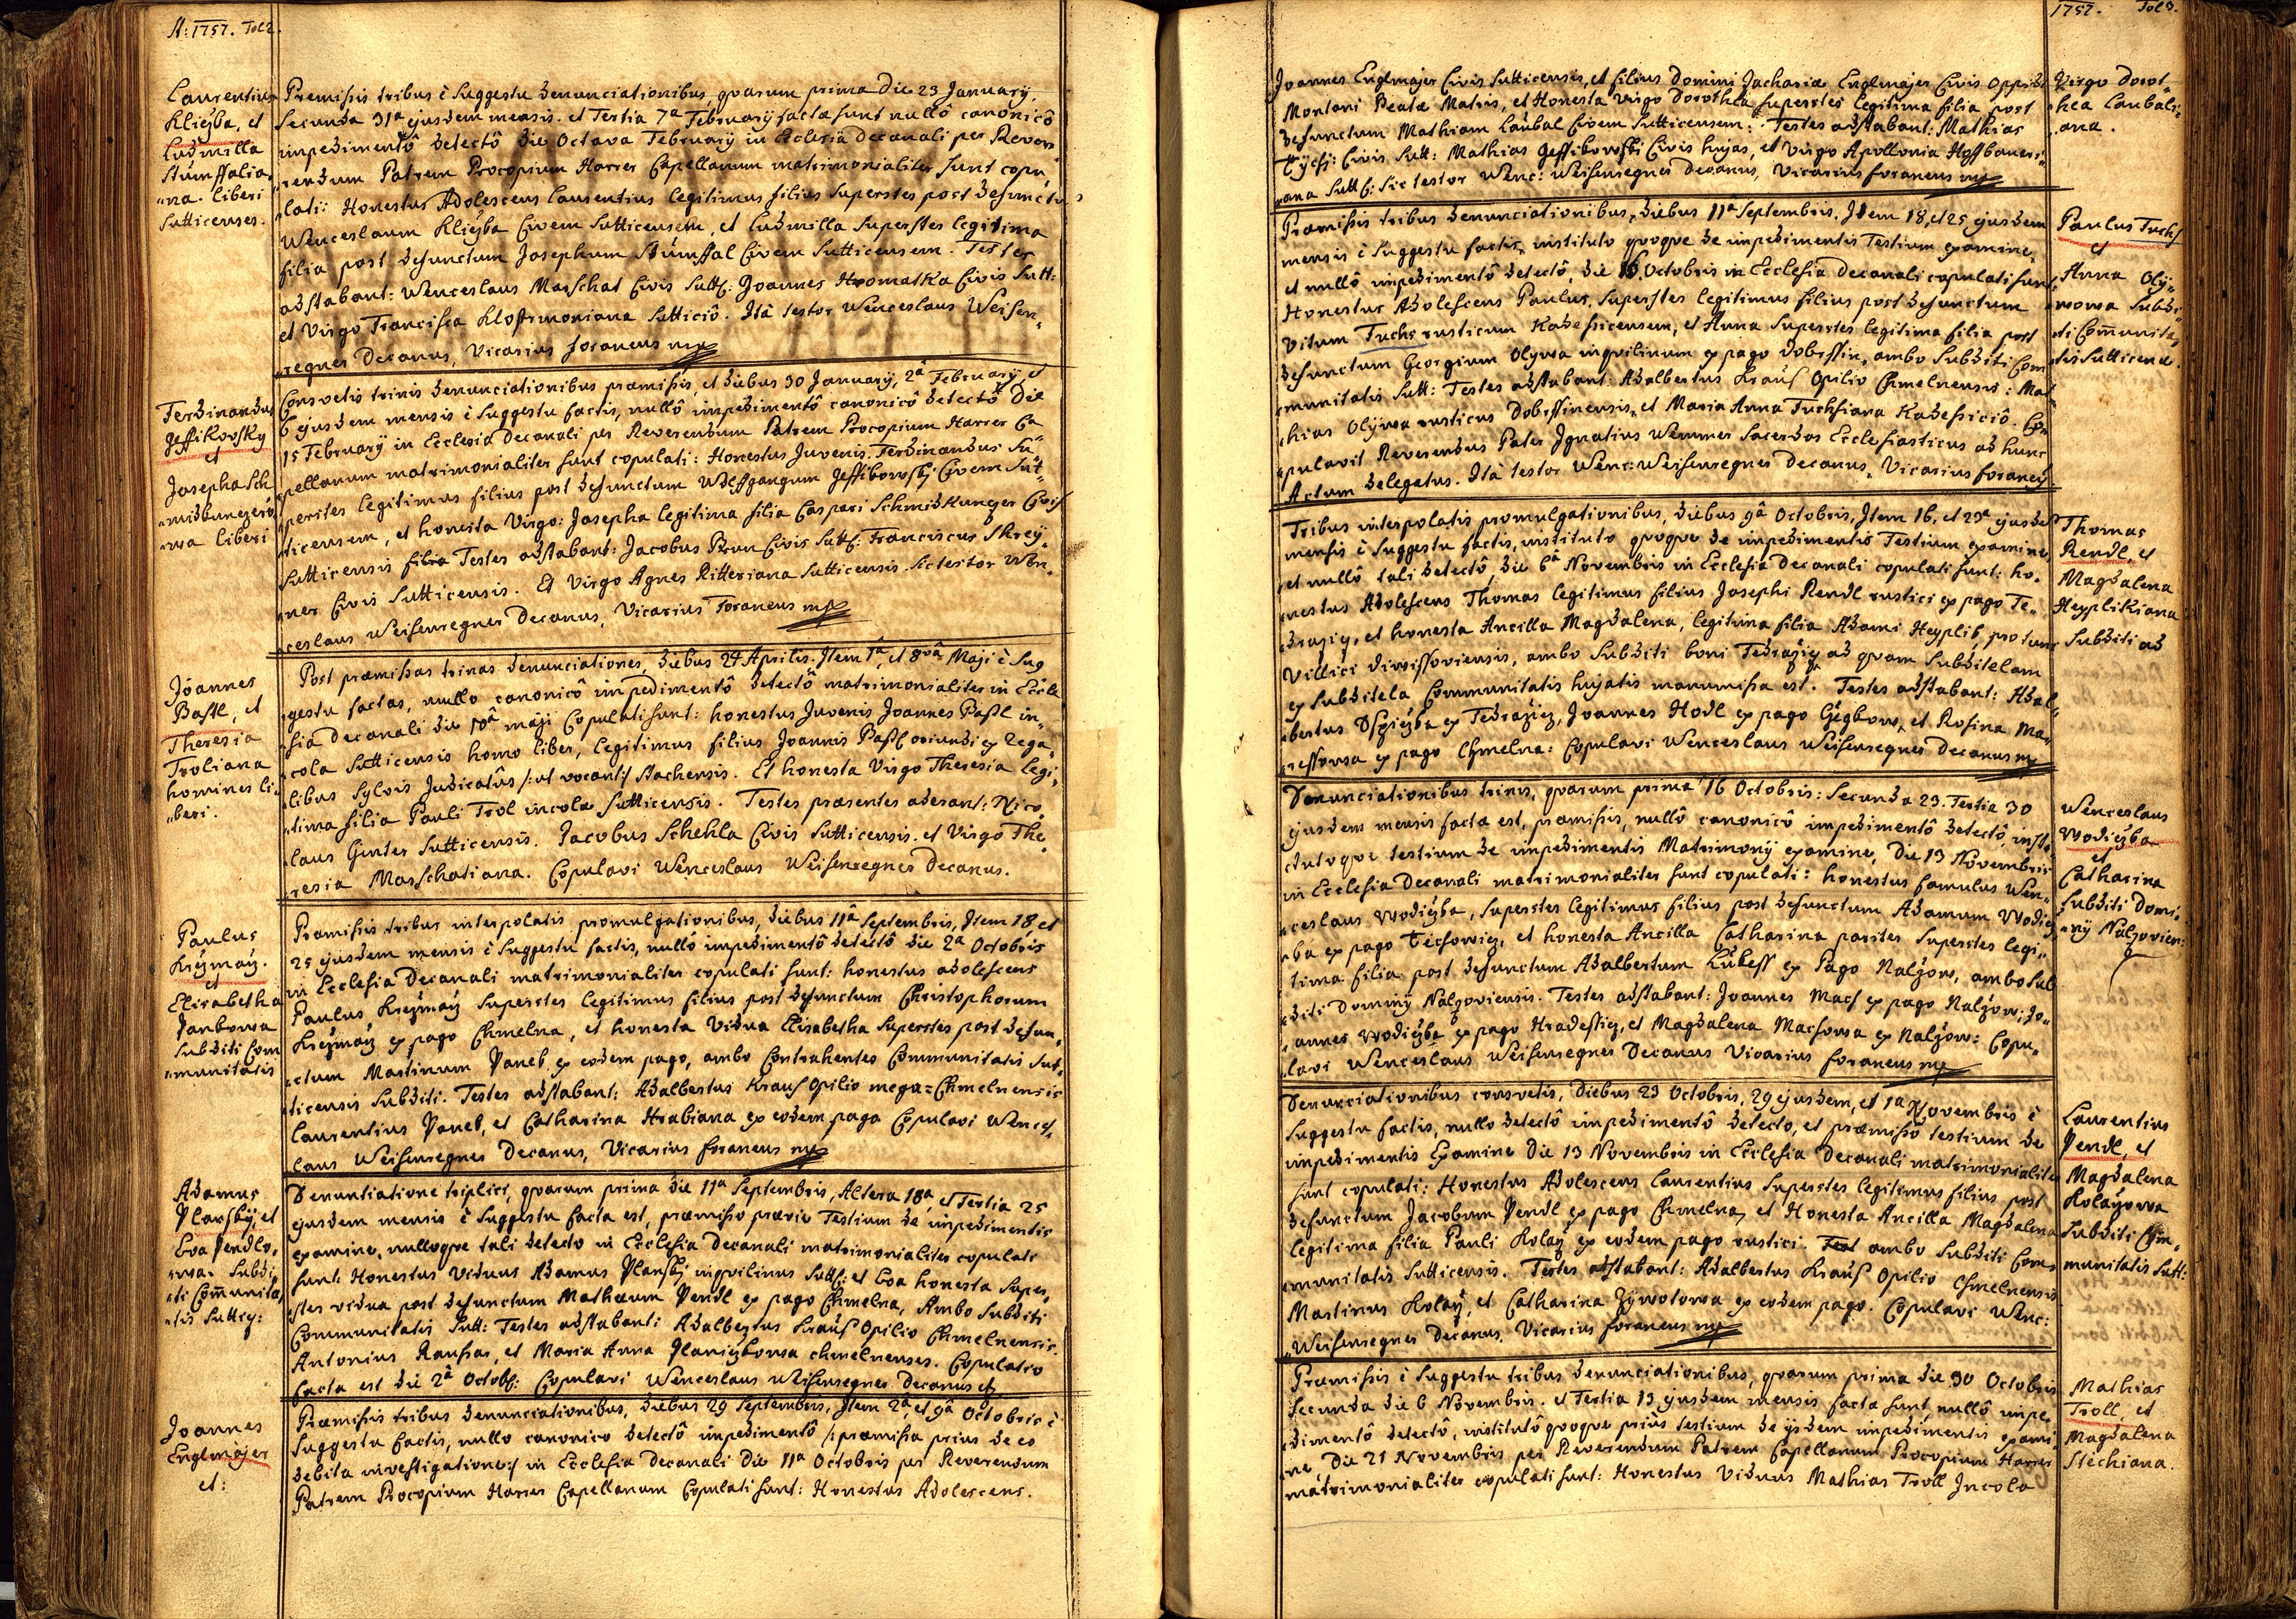 A: 1757. Fol 2.
Laurentius
Kliczba, et
Ludmilla
Stumffalia-
„na. liberi
Sutticenses.
Premissis tribus è Suggestu denunciationibus, quarum prima Die 23 January,
Secunda 31a ejusdem mensis. et Tertia 7a February factæ sunt nullô canonicô
impedimentô detectô die Octava February in Ecclesia decanali per Reve-
„rendum Patrem Procopium Harrer Capellanum matrimonialiter sunt copu„
„lati: Honestus Adolescens Laurentius legitimus filius Superstes post defunctu
Wenceslaum Kliczba Civem Sutticensem, et Ludmilla Superstes legitima
filia post defunctum Josephum Stumffal Civem Sutticensem. Testes
adstabant: Wenceslaus Marschat Civis Sutt: Joannes Hromatka Civis Sutt:
et Virgo Francisca Klostrmoniana Sutticiô. Ità testor Wenceslaus Weisen„
„regner Decanus, Vicarius foraneus mp
Ferdinandus
Jessikovsky
et
Josepha Sch
„midkunzero„
„wa liberi
Consvetis trinis denunciationibus præmissis, et diebus 30 January, 2a February et
6 ejusdem mensis è Suggestu factis, nullô impedimentô canonicô detectô Die
15 February in Ecclesia decanali per Reverendum Patrem Procopium Harrer Ca
„pellanum matrimonialiter sunt copulati: Honestus Juvenis Ferdinandus Su„
„perstes legitimus filius post defunctum Wolffgangum Jessikowsky Civem Sut„
„ticensem, et honesta Virgo: Josepha legitima filia Caspari Schmidkunzer Civis
Sutticensis filia Testes adstabant: Jacobus Prun Civis Sutt: Franciscus Skrey„
„ner Civis Sutticensis. Et Virgo Agnes Ritteriana Sutticensis. Sic testor Wen„
„ceslaus Weisenregner Decanus, Vicarius Foraneus mp
Joannes
Bastl, et
Theresia
Troliana
homines li„
„beri.
Post præmissas trinas denunciationes, diebus 24 Aprilis. Item 1a, et 8va Maji è Sug
gestu factas, nullo canonicô impedimentô detectô matrimonialiter in Eccle
„sia decanali die 10a maji Copulati sunt: honestus Juvenis Joannes Pastl in„
„cola Sutticensis homo liber, legitimus filius Joannis Pastl oriundi ex Rega„
libus Sylvis Judicatûs /:ut vocant:/ Stachensis. Et honesta Virgo Theresia legi„
„tima filia Pauli Trol incolæ Sutticensis. Testes præsentes aderant: Nico„
laus Ginter Sutticensis. Jacobus Schehla Civis Sutticensis. et Virgo The„
„resia Marschatiana. Copulavi Wenceslaus Weisenregner Decanus.
Paulus
Kreymaÿ.
et
Elisabetha
Vankowa
Subditi Com
„munitatis
Premissis tribus interpolatis promulgationibus, diebus 11a Septembris, Item 18, et
25 ejusdem mensis è Suggestu factis, nullô impedimentô detectô die 2a Octobris
in Ecclesia Decanali matrimonialiter copulati sunt: honestus adolescens
Paulus Kreymaÿ Superstes legitimus filius post defunctum Christophorum
Kreymaÿ ex pago Chmelna, et honesta Vidua Elisabetha Superstes post defun„
„ctum Martinum Vanek ex eodem pago, ambo Contrahentes Communitatis Sut„
„ticensis Subditi. Testes adstabant: Adalbertus Kraus Opilio mega=Chmelnensis
Laurentius Vanek, et Catharina Hrabiana ex eodem pago Copulavi Wences„
laus Weisenregner Decanus, Vicarius foraneus mp
Adamus
Planský, et
Eva Vendlo„
„wa. Subdi„
„ti Communita„
„tis Suttic:
Denuntiatione triplici, quarum prima die 11a Septembris, Altera 18a, et Tertia 25
ejusdem mensis è Suggestu facta est, præmisso prævie Testium de impedimentis
examine, nulloque tali detecto in Ecclesia Decanali matrimonialiter copulati
sunt: Honestus Viduus Adamus Planský inquilinus Sutt: et Eva honesta Super„
„stes vidua post defunctum Matheum Vendl ex pago Chmelna, Ambo Subditi
Communitatis Sutt: Testes adstabant: Adalbertus Kraus Opilio Chmelnensis.
Antonius Rausar, et Maria Anna Planiczkowa chmelnenses. Copulatio
facta est die 2a Octob: Copulavi Wenceslaus Weisenregner Decanus
Joannes
Englmajer
et:
Præmissis tribus denunciationibus, diebus 29 Septembris, Item 2a, et 9a Octobris è
Suggestu factis, nullo canonico detectô impedimentô /: præmissa prius de eo
debita investigatione:/ in Ecclesia Decanali Die 11a Octobris per Reverendum
Patrem Procopium Harrer Capellanum Copulati sunt: Honestus Adolescens.
1757. Fol 3.
Joannes Englmajer Civis Sutticensis, et filius Domini Zachariæ Englmajer Civis Oppidi
Montani Beatæ Matris, et Honesta Virgo Dorothea Superstes legitima filia post
defunctum Mathiam Laubal Civem Sutticensem: Testes adstabant: Mathias
Civis Sutt: Mathias Jessikowski Civis hujas, et Virgo Apollonia Hoffbaueri„
„ana Sutt: Sic testor Wenc: Weisenregner Decanus, Vicarius foraneus mp
Virgo Dorot„
„hea Laubali„
„ana.
Præmissis tribus denunciationibus, diebus 11a Septembris. Item 18, et 25 ejusdem
mensis è Suggestu factis, instituto quoque de impedimentis Testium examine,
et nullô impedimentô detectô, die 16 Octobris in Ecclesia Decanali copulati sunt
Honestus Adolescens Paulus, Superstes legitimus filius post defunctum
Vitum Fuchs rusticum Kadessicensem, et Anna Superstes legitima filia post
defunctum Georgium Olywa inquilinum ex pago Dobrssin, ambo Subditi Com
„munitatis Sutt: Testes adstabant: Adalbertus Kraus Opilio Chmelnensis: Mat
„hias Olywa rusticus Dobrssinensis, et Maria Anna Fuchsiana Kadessiciô. Co„
„pulavit Reverendus Pater Ignatius Wemmer Sacerdos Ecclesiasticus ad hunc
Actum delegatus. Ità testor Wenc: Weisenregner Decanus, Vicarius foraneus
Paulus Fuchs
et
Anna Oly„
„wowa Subdi„
„ti Communita„
„tis Sutticens.
Tribus interpolatis promulgationibus, diebus 9a Octobris, Item 16, et 23a ejusdem
mensis è Suggestu factis, instituto quoque de impedimentis Testium examine,
et nullô tali detectô, die 6a Novembris in Ecclesia Decanali copulati sunt: ho„
nestus Adolescens Thomas legitimus filius Josephi Rendl rustici ex pago Te„
„drazig, et honesta Ancilla Magdalena, legitima filia Adami Heyplik, pro tunc
Villici Diwissoviensis, ambo Subditi boni Tedrazig ad quam Subditelam
ex Subditela Communitatis hujatis manumissa est. Testes adstabant: Adal„
„bertus ex Tedrazicz, Joannes Hodl ex pago et Rosina Ma„
„ressowa ex pago Chmelna: Copulavi Wenceslaus Weisenregner Decanus mp
Thomas
Rendl, et
Magdalena
Heyplikiana
Subditi ad
Denunciationibus trinis, quarum prima 16 Octobris: Secunda 23. Tertia 30
ejusdem mensis facta est, præmissis, nullô canonicô impedimentô detectô, insti„
„tutoque testium de impedimentis Matrimony examine, Die 13 Novembris
in Ecclesia Decanali matrimonialiter sunt copulati: honestus famulus Wen„
„ceslaus Wodiczka, Superstes legitimus filius post defunctum Adamum Wodicz
„ka ex pago Tiechowicz, et honesta Ancilla Catharina pariter Superstes legi„
tima filia post defunctum Adalbertum Lukess ex Pago Nalzow, ambo Sub
„diti Dominy Nalzoviensis. Testes adstabant: Joannes Mach ex pago Nalzow; Jo„
„annes Wodiczka ex pago Hradesticz, et Magdalena Machowa ex Nalzow: Copu„
„lavi Wenceslaus Weisenregner Decanus Vicarius foraneus mp
Wenceslaus
Wodiczka
et
Catharina
Subditi Domi„
„ny Nalzovien:
Denunciationibus consvetis, Diebus 23 Octobris, 29 ejusdem, et 1a Novembris è
Suggestu factis, nullo detectô impedimentô detecto, et præmissô testium de
impedimentis Examine Die 13 Novembris in Ecclesia Decanali matrimonialiter
sunt copulati: Honestus Adolescens Laurentius Superstes legitimus filius post
defunctum Jacobum Vendl ex pago Chmelna, et Honesta Ancilla Magdalena
legitima filia Pauli Kolaÿ ex eodem pago rustici. Test ambo Subditi Com„
„munitatis Sutticensis. Testes adstabant: Adalbertus Kraus Opilio Chmelnensis
Martinus Kolaÿ, et Catharina Zywotowa ex eodem pago. Copulavi Wenc:
„Weisenregner Decanus, Vicarius foraneus mp
Laurentius
Vendl, et
Magdalena
Kolaÿowa
Subditi Com„
munitatis Sutt:
Præmissis è Suggestu tribus denunciationibus, quarum prima die 30 Octobris
Secunda die 6 Novembris. et Tertia 13 ejusdem mensis facta sunt nullô impe„
„dimentô detectô, institutô quoque prius testium de ÿsdem impedimentis exami„
„ne Die 21 Novembris per Reverendum Patrem Capellanum Procopium Harrer
matrimonialiter copulati sunt: Honestus Viduus Mathias Troll Incola
Mathias
Troll, et
Magdalena
Stechiana.